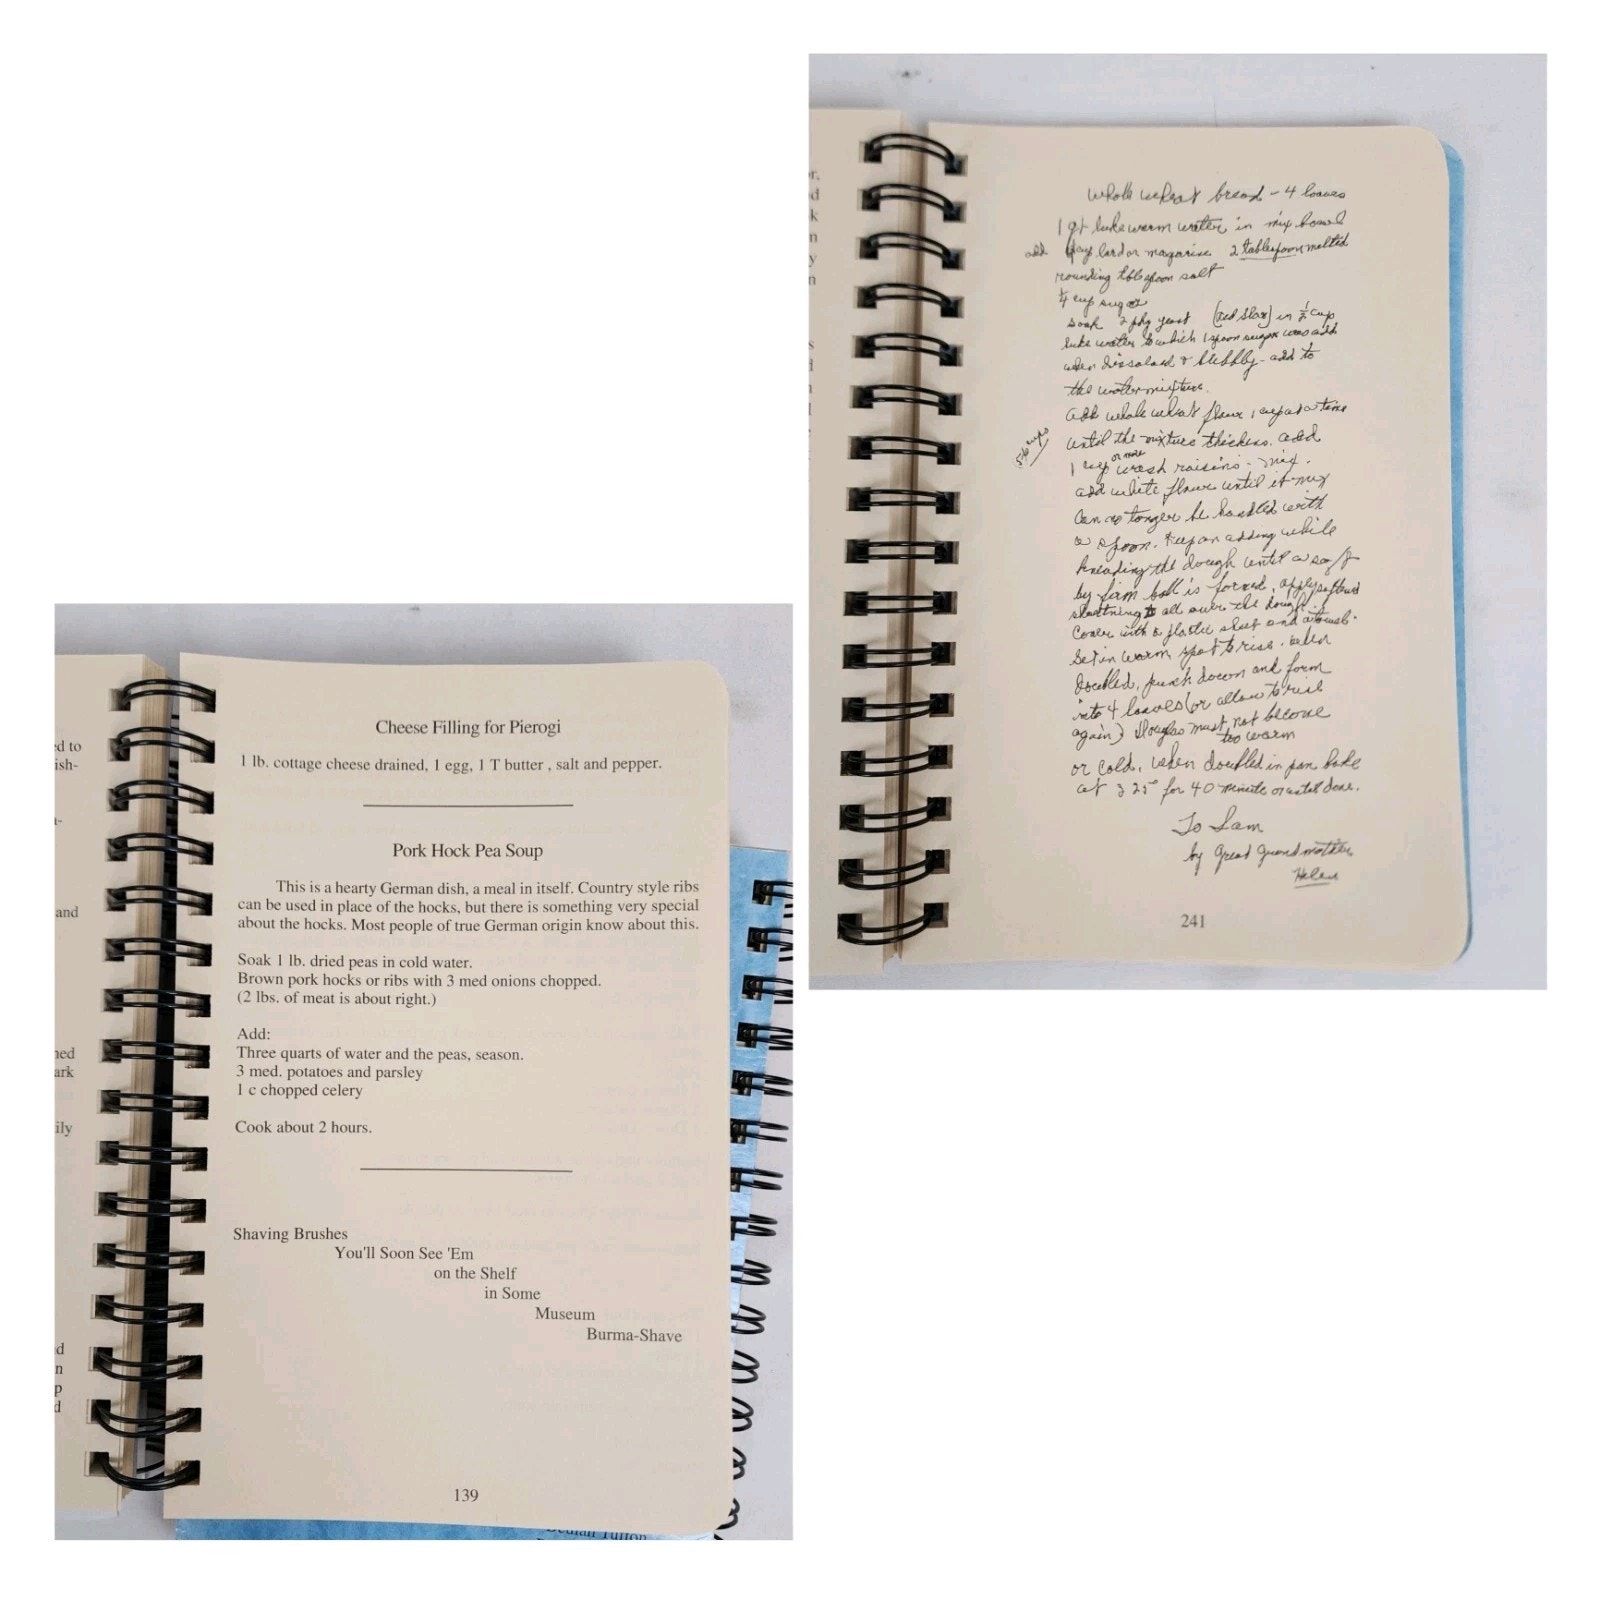 Cheese Filling for Pierogi
1 lb. cottage cheese drained, 1 egg, 1 T butter , salt and pepper.
Pork Hock Pea Soup
This is a hearty German dish, a meal in itself. Country style ribs
can be used in place of the hocks, but there is something very special
about the hocks. Most people of true German origin know about this.
Soak 1 lb. dried peas in cold water.
Brown pork hocks or ribs with 3 med onions chopped.
(2 lbs. of meat is about right.)
Add:
Three quarts of water and the peas, season.
3 med. potatoes and parsley
1 c chopped celery
Cook about 2 hours.
Shaving Brushes
You'll Soon See 'Em
on the Shelf
in Some
Museum
Burma-Shave
139
ed to
ish-
and
ned
ark
ily
whole wheat bread - 4 loaves
1 qt lukewarm water in mix bowl
add lard or margarine 2 tablespoon melted
rounding tablespoon salt
¼ cup sugar
soak 2 pkg yeast (red star) in ½ cup
luke water to which 1 spoon sugar was add
when dissolved & bubbly - add to
the water mixture.
add whole wheat flour 1 cup at a time
until the mixture thickens. add
5-6 cups
1 cup or more wash raisins - mix.
add white flour until it mix
can no longer be handled with
a spoon. Keep on adding while
kneading the dough until a soft
by firm ball is formed, apply softened
shortning to all over the dough.
Cover with a plastic sheet and a towel.
Set in warm spot to rise. when
doubled, punch down and form
into 4 loaves (or allow to rise
again) Doughs must not become
too warm
or cold. when doubled in pan bake
at 325° for 40 minute or until done.
To Sam
by Great Grandmother
Helen
241